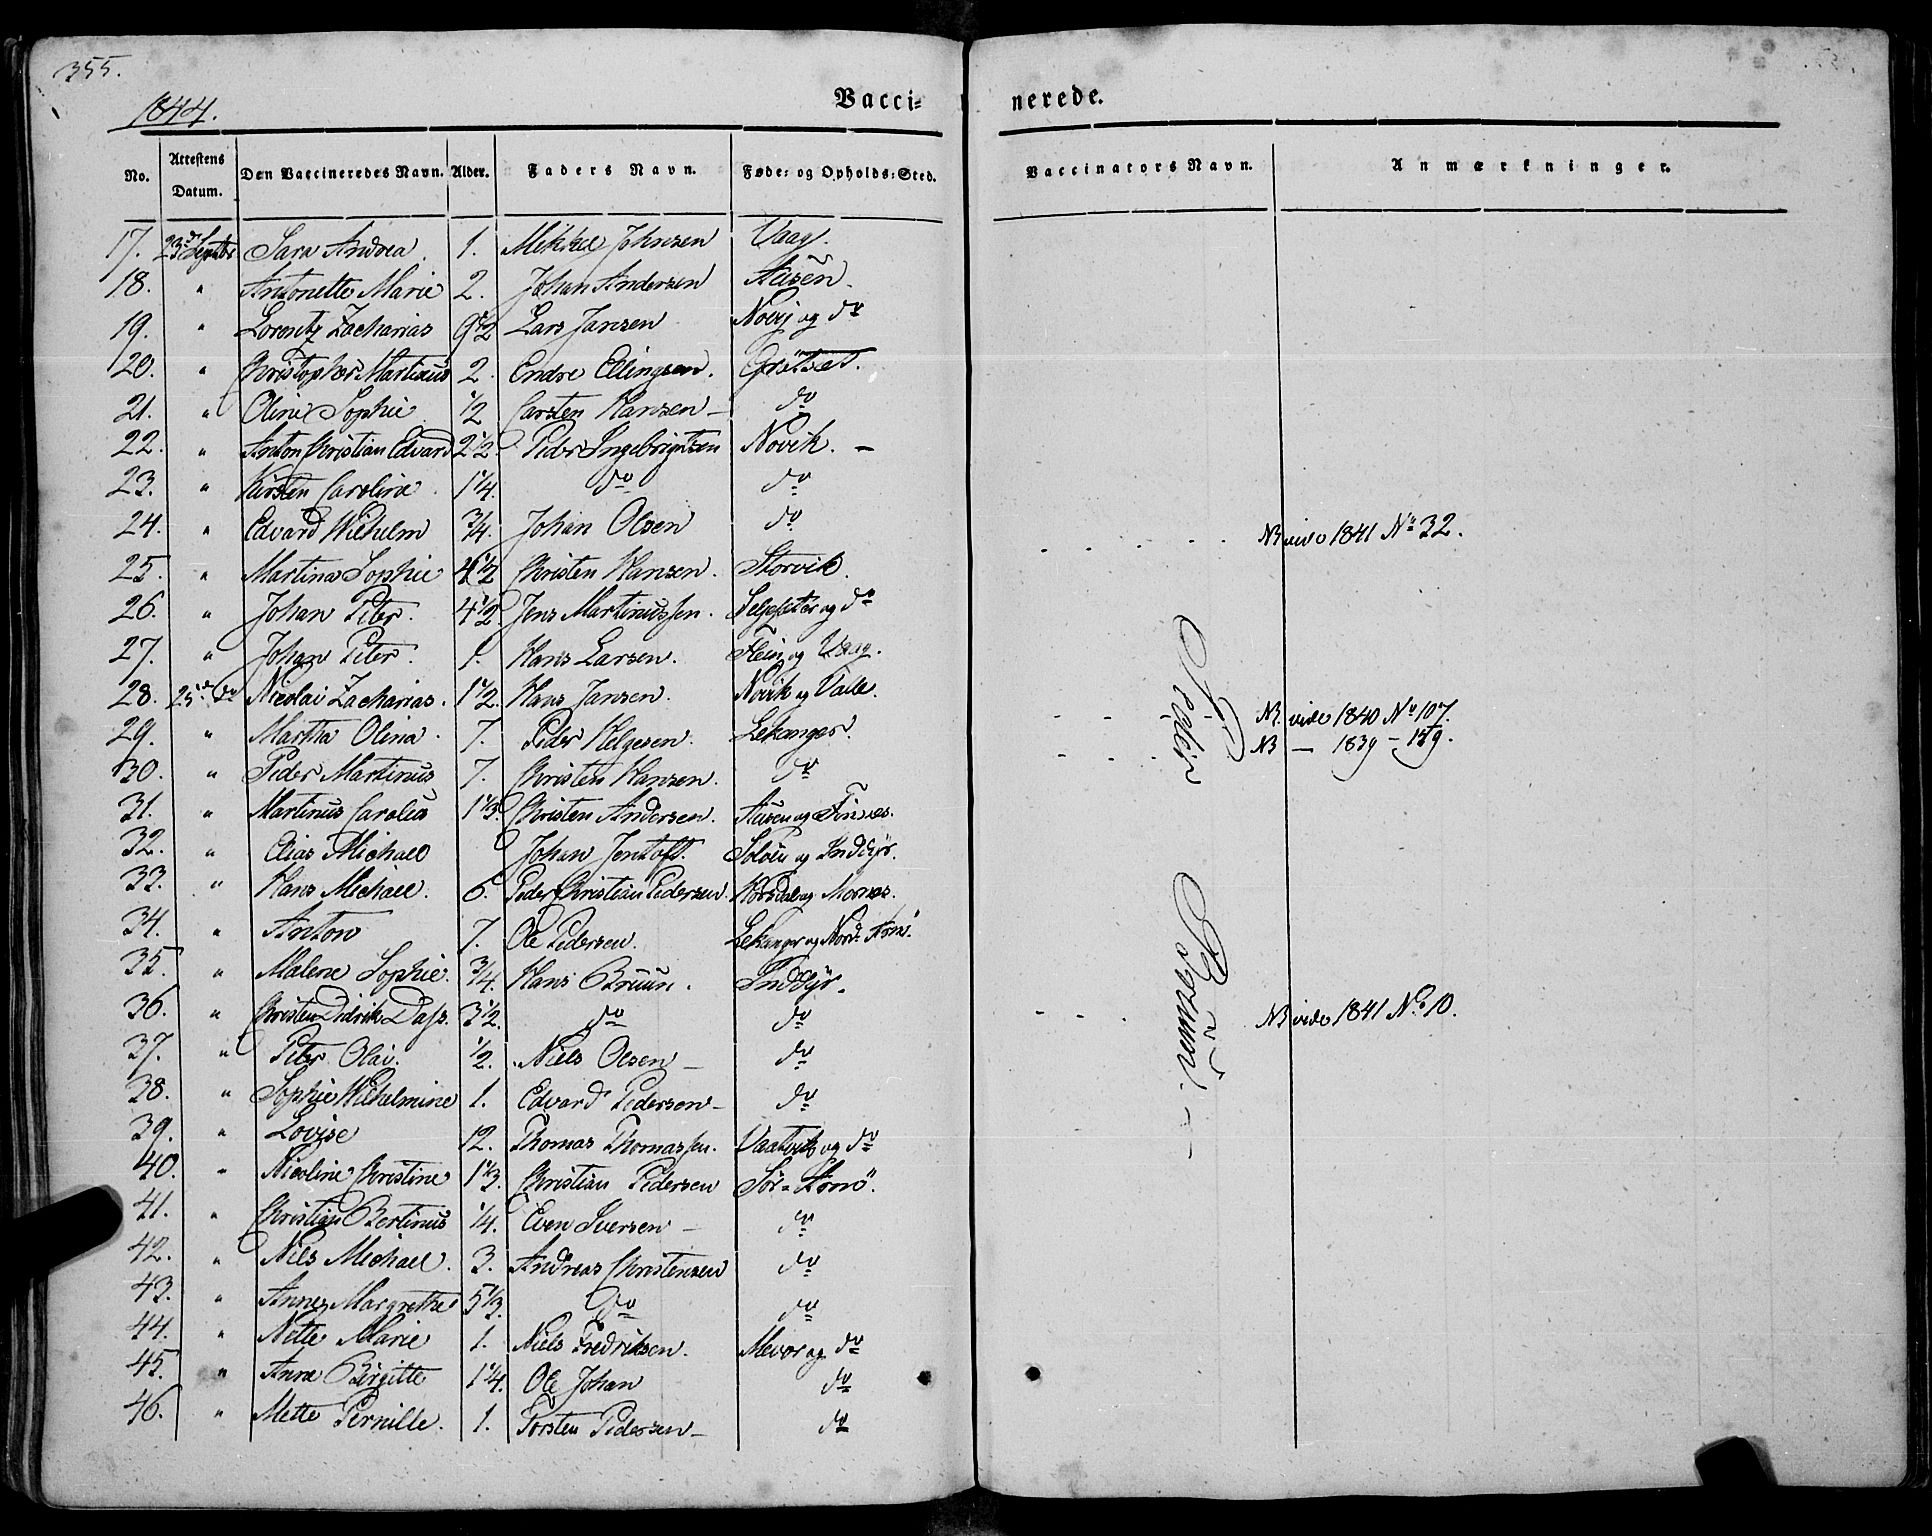 355.
1844.
Vacci= nerede.
No. Attestens Datum. Den Vaccineredes Navn. Alder. Faders Navn. Føde= og Opholds=Sted. Vaccinators Navn. Anmærkninger.
17. 23d Septbr Sara Andrea 1. Mikkel Johnsen Vaag.
18. " Antonette Marie 2. Johan Andersen Ausen.
19. " Lorentz Zacharias 9 1/2 Lars Jansen og do
20. " Christopher Martinus 2 Endre Ellingsen. Grötset.
21. " Oline Sophie 1/2 Carsten Hansen – do
22. " Anton Christian Edvard 2 1/2 Peder Ingebrigtsen Novik. –
23. " Kirsten Caroline 1 1/4. do do
24. " Edvard Wilhelm 3/4. Johan Olsen do NB vide 1841 No 32.
25. " Martina Sophie 4 1/2 Christen Hansen. Storvik.
26. " Johan Peter. 4 1/2 Jens Martinussen. og do
27. " Johan Peter. 1. Hans Larsen. Flein og Vaag.
28. 25d do Nicolai Zacharias. 1 1/2. Hans Jansen. Novik og Valle.
29. " Martha Olina. 7. Peder Helgesen. Lekanger. NB vide 1840 No 107.
30. " Peder Martinus 7. Christen Hansen. do NB — 1839 –
31. " Martinus Carolus 1 1/3. Christen Andersen. Ausen og Finnes.
32. " Elias Michael Johan Jentoft. Soløen og Inddyr.
33. " Hans Michael. 6. Peder Christian Pedersen. og Mornes.
34. " Anton 7. Ole Pedersen. Lekanger og Nord Arnö.
35. " Malene Sophie. 3/4. Hans Bruun. Inddyr.
36. " Christen Didrik Dass. 3 1/2. do do NB vide 1841 No 10.
37. " Peter Olai. 1/2. Niels Olsen – do
38. " Sophie Wilhelmine 1. Edvard Pedersen – do
39. " Lovise 12. Thomas Thomassen. Vaatvik og do
40. " Nicoline Christine 1 1/3. Christian Pedersen Sör = Arnö.
41. " Christian Bertinus 1/4. Even Iversen – do
42. " Nils Michael. 3. Andreas Christensen do
43. " Anne Margrethe 5 1/3. do do
44. " Nette Marie 1. Niels Fredriksen. Mevær og do
45. " Anne Birgitte 1 1/4. Ole Johan do
46. " Mette Pernille. 1. Torsten Pedersen – do